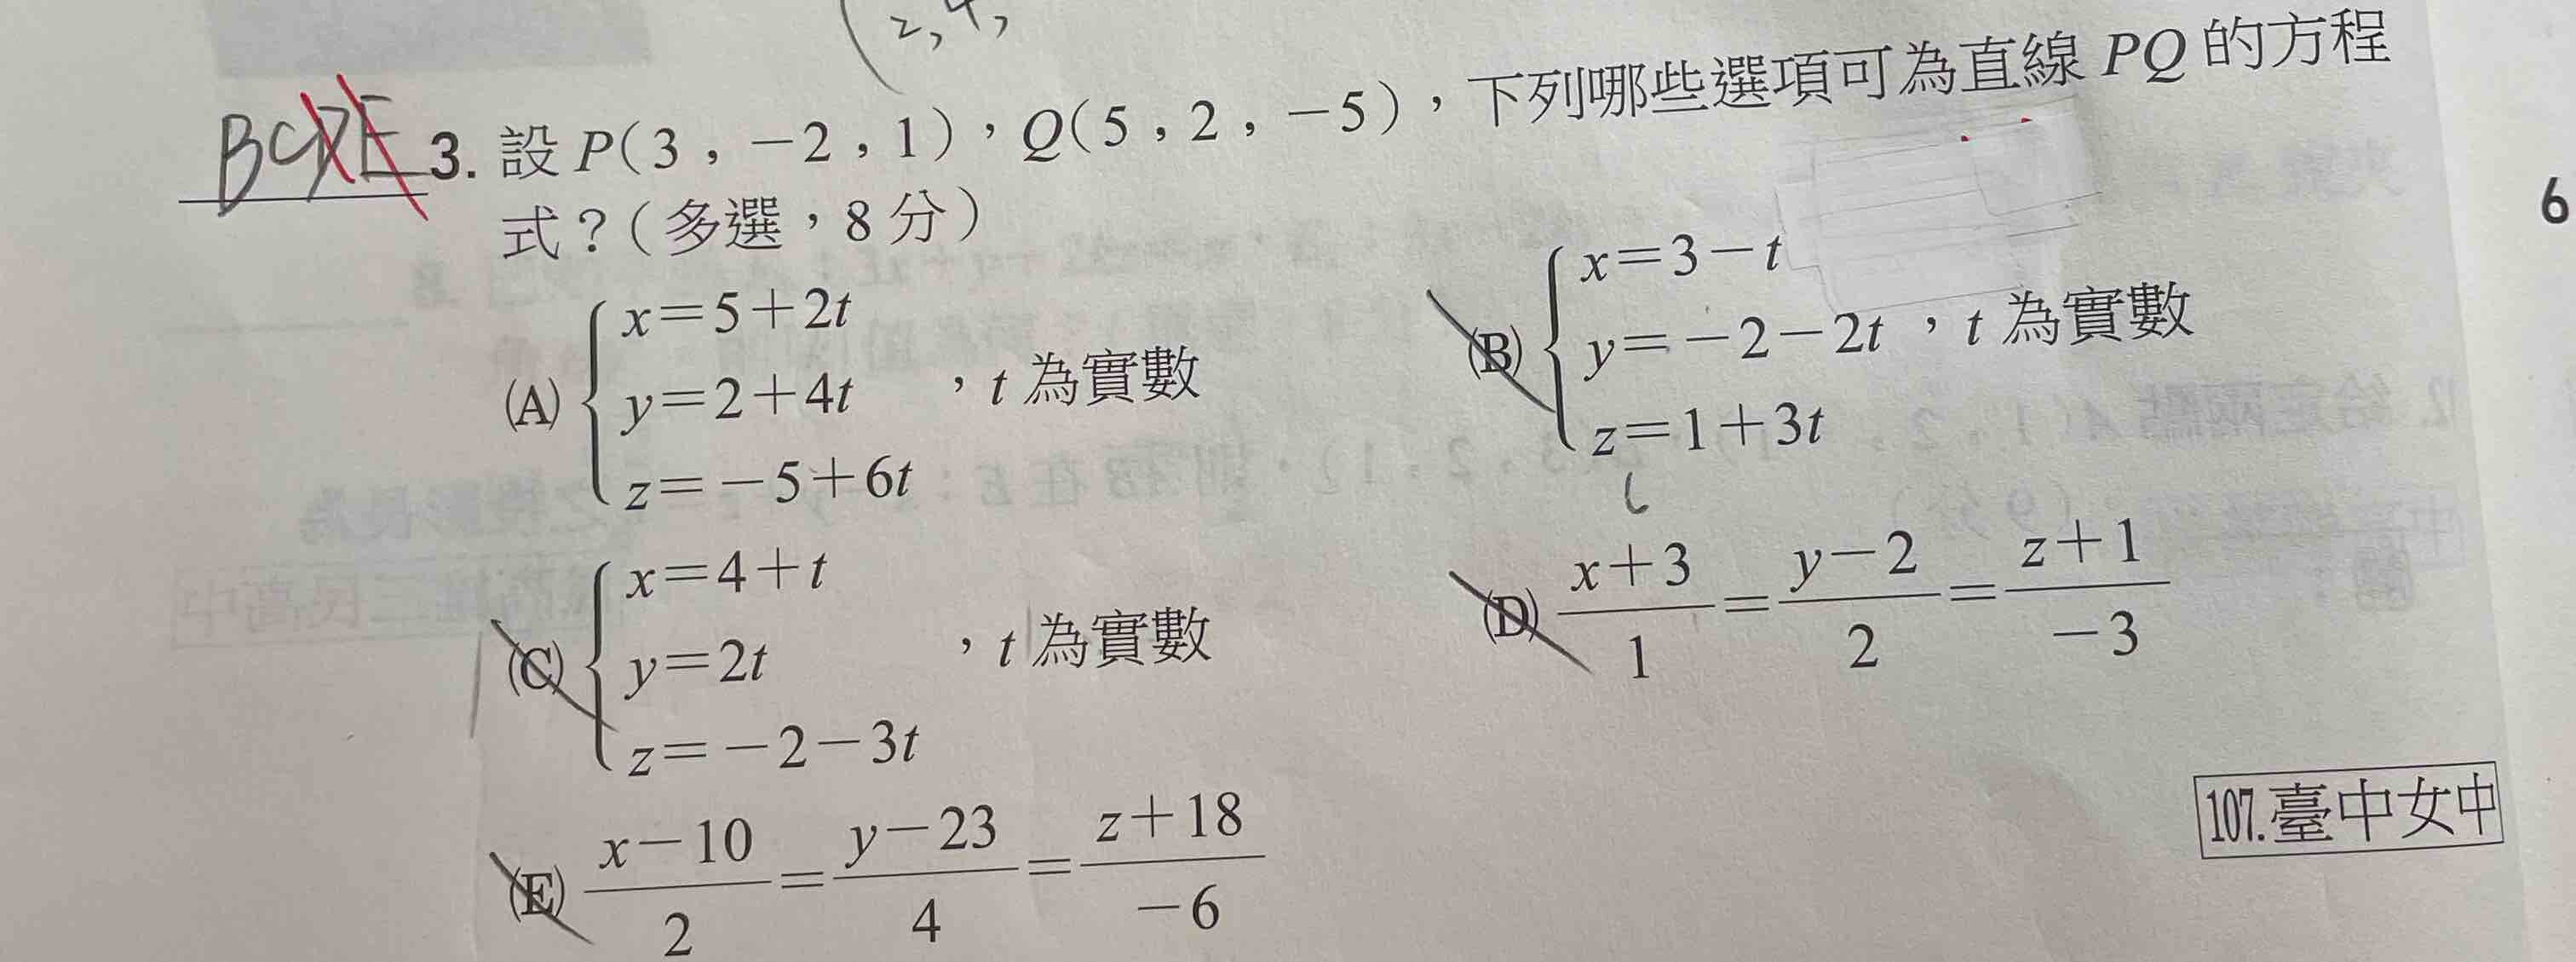 (2, 4,
BCDE 3. 設 P(3，-2，1)，Q(5，2，-5)，下列哪些選項可為直線 PQ 的方程
式？(多選，8 分)
(A) { x=5+2t
y=2+4t ，t 為實數
z=-5+6t
(B) { x=3-t
y=-2-2t ，t 為實數
z=1+3t
(C) { x=4+t
y=2t ，t 為實數
z=-2-3t
(D) (x+3)/1=(y-2)/2=(z+1)/-3
(E) (x-10)/2=(y-23)/4=(z+18)/-6
107.臺中女中
6